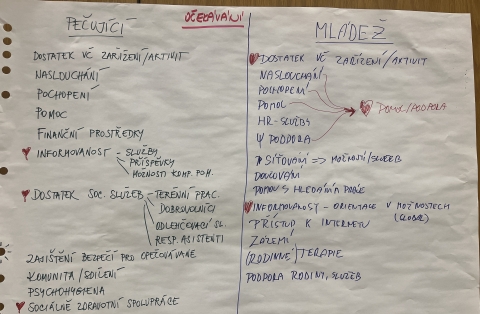 OČEKÁVÁNÍ
PEČUJÍCÍ
DOSTATEK VČ ZAŘÍZENÍ/AKTIVIT
NASLOUCHÁNÍ
POCHOPENÍ
POMOC
FINANČNÍ PROSTŘEDKY
INFORMOVANOST - SLUŽBY
PŘÍSPĚVKY
MOŽNOSTI KOMP. POM.
DOSTATEK SOC. SLUŽEB - TERÉNNÍ PRAC
DOBROVOLNÍCI
ODLEHČOVACÍ SL.
RESP. ASISTENTI
ZAJIŠTĚNÍ BEZPEČÍ PRO OPEČOVÁVANÉ
KOMUNITA/SDÍLENÍ
PSYCHOHYGIENA
SOCIÁLNĚ ZDRAVOTNÍ SPOLUPRÁCE
MLÁDEŽ
DOSTATEK VČ ZAŘÍZENÍ/AKTIVIT
NASLOUCHÁNÍ
POCHOPENÍ
POMOC
POMOC/PODPORA
HR-SLUŽBY
Ψ PODPORA
SÍŤOVÁNÍ => MOŽNOSTI/SLUŽEB
POMOC S HLEDÁNÍM PRÁCE
INFORMOVANOST - ORIENTACE V MOŽNOSTECH
PŘÍSTUP K INTERNETU
ZÁZEMÍ
(RODINNÉ) TERAPIE
PODPORA RODIN, SLUŽEB